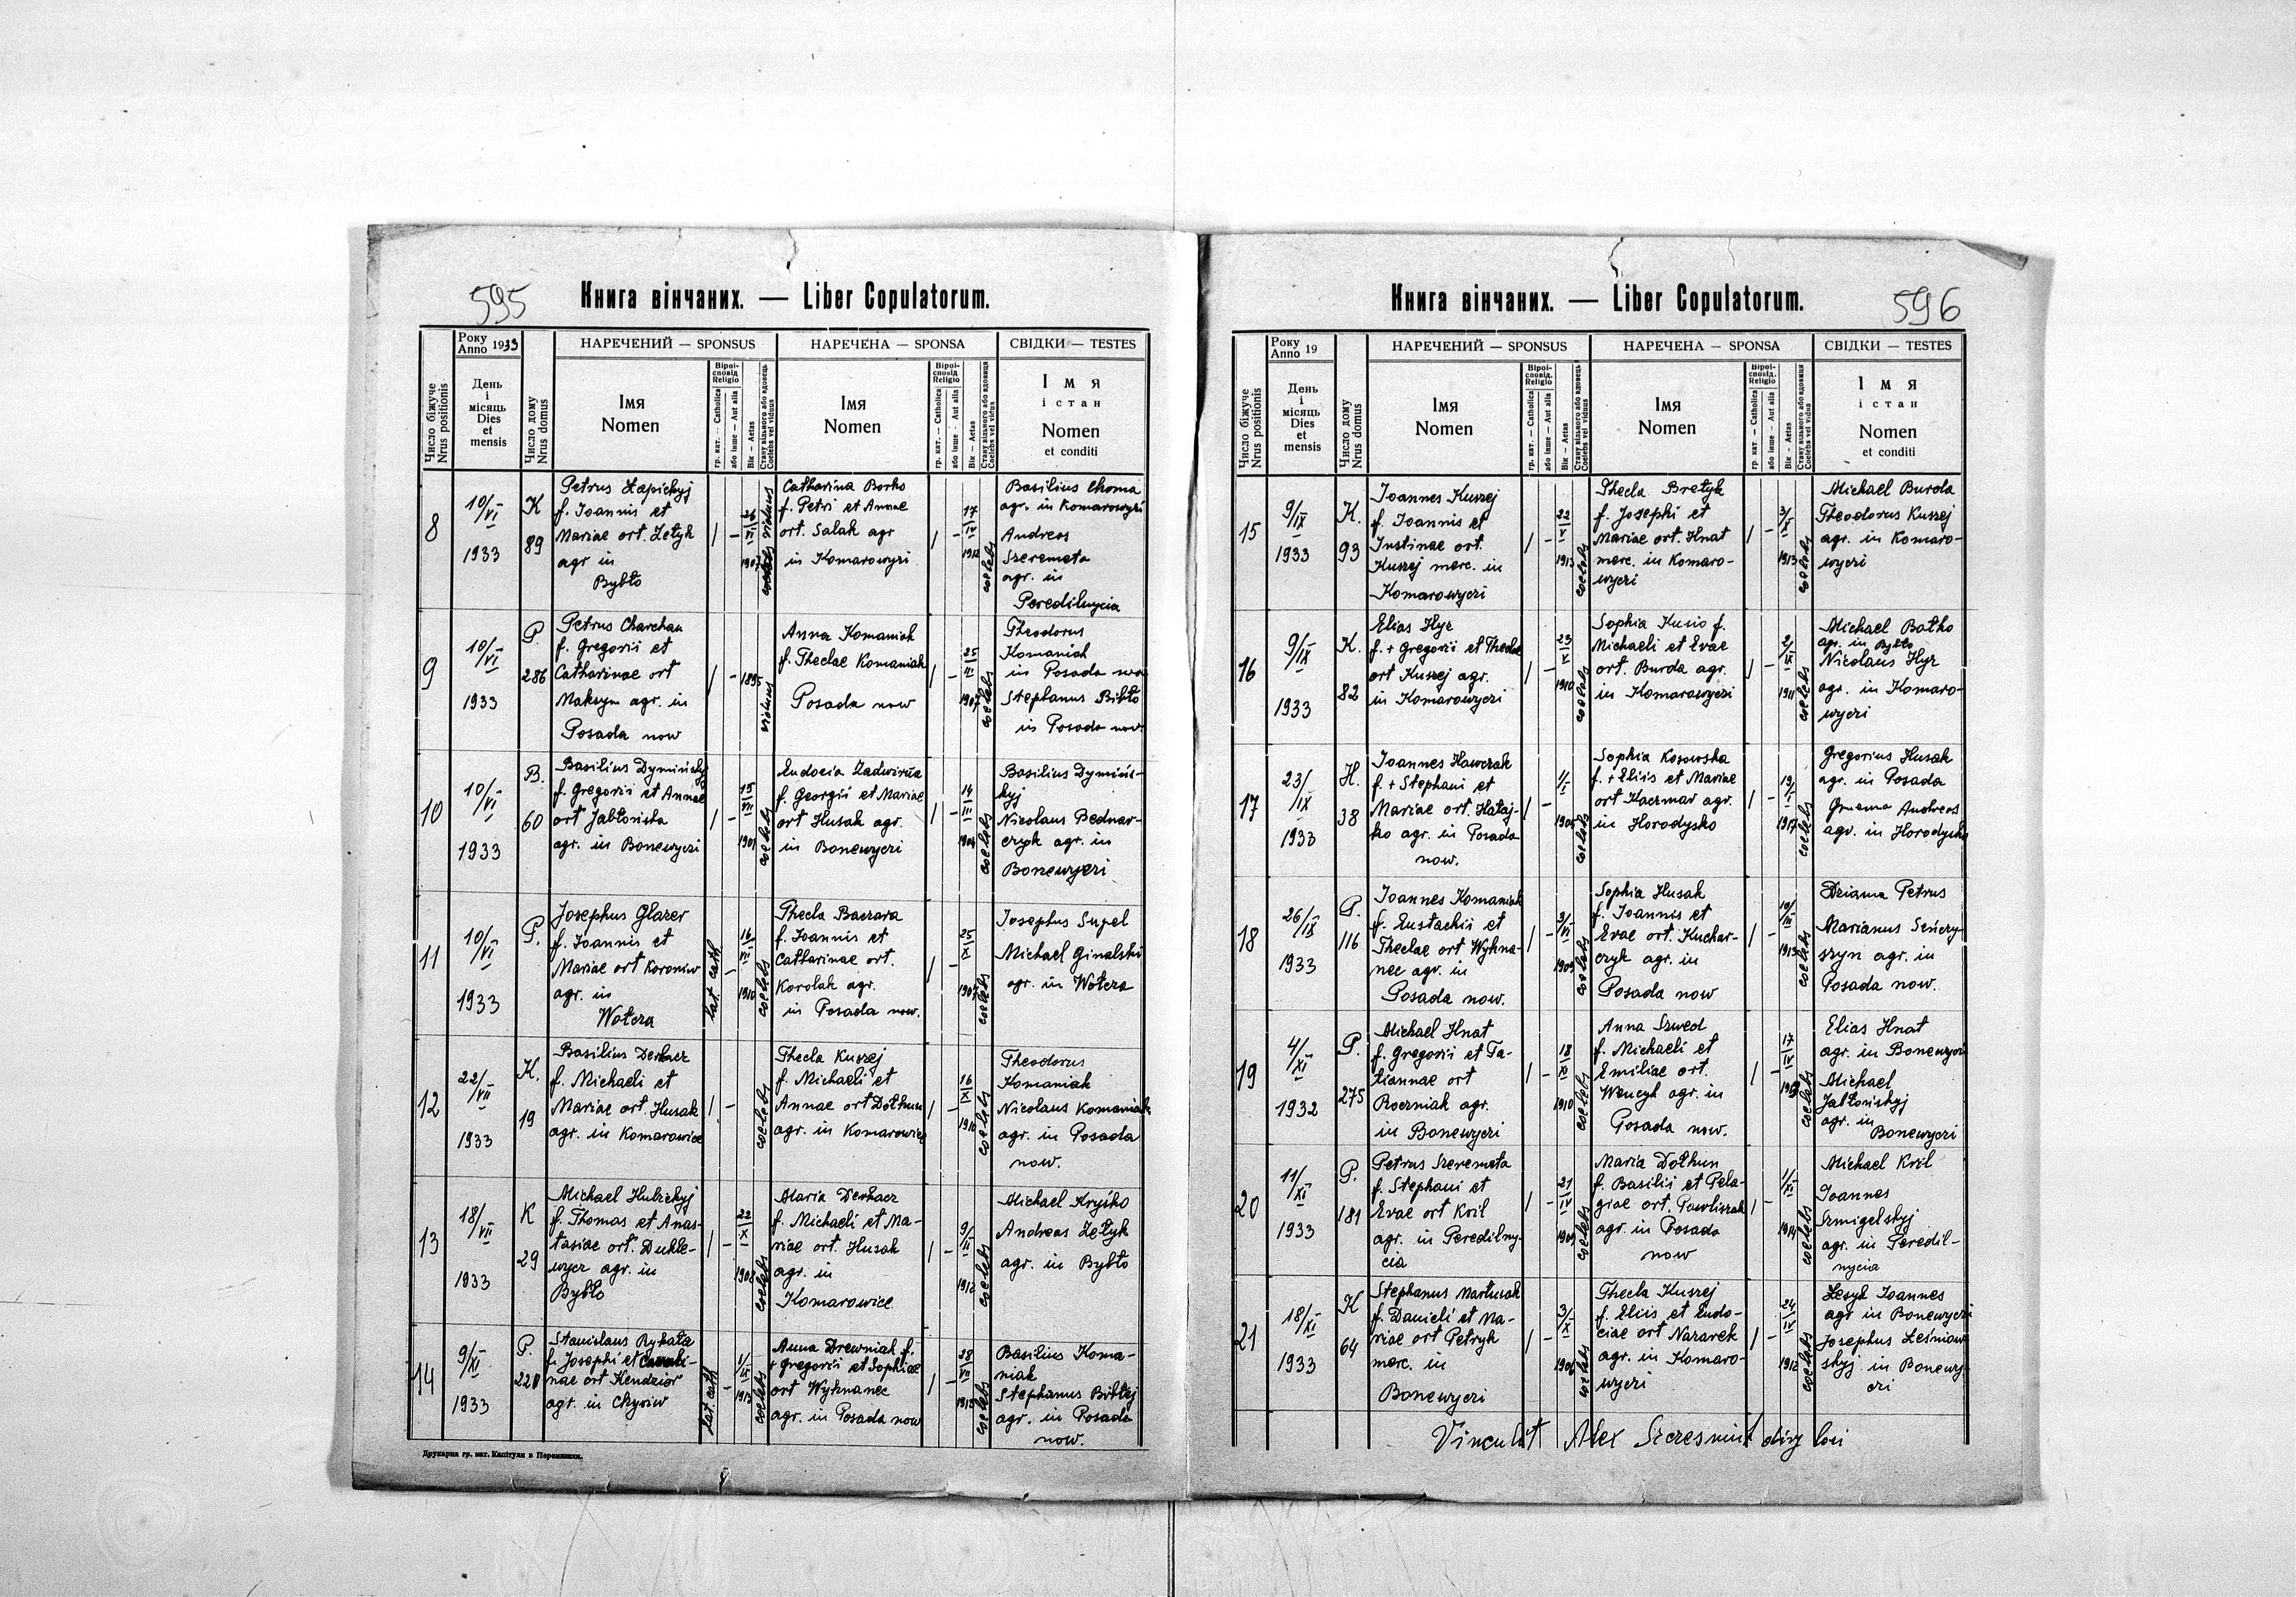 595
Книга вінчаних. — Liber Copulatorum.
Року
Anno 1933
НАРЕЧЕНИЙ — SPONSUS
НАРЕЧЕНА — SPONSA
СВІДКИ — TESTES
Число біжуче
Nrus positionis
День
і
місяць
Dies
et
mensis
Число дому
Nrus domus
Імя
Nomen
Віроі-
сповід
Religio
гр. кат. — Catholica
або інше — Aut alia
Вік — Aetas
Стану вільного або вдовець
Coelebs vel viduus
Імя
Nomen
Віроі-
сповід
Religio
гр. кат. — Catholica
або інше — Aut alia
Вік — Aetas
Стану вільного або вдовиця
Coelebs vel vidua
Імя
і стан
Nomen
et conditi
8
10/VI
1933
K
89
Petrus Łapickyj
f. Joannis et
Mariae ort. Zetyk
agr in
Bybło
viduus
1907
Catharina Borks
f. Petri et Annae
ort. Salak agr
in Komarowyczi
17
IV
1912
coelebs
Basilius Choma
agr. in Komarowyczi
Andreas
Szeremeta
agr. in
Peredilnycia
9
10/VI
1933
P
286
Petrus Charchan
f. Gregorii et
Catharinae ort
Maksym agr. in
Posada now
1895
viduus
Anna Komaniak
f. Theclae Komaniak
Posada now
25
III
1907
coelebs
Theodorus
Komaniak
in Posada now
Stephanus Bibło
in Posada now.
10
10/VI
1933
B.
60
Basilius Dymińskyj
f. Gregorii et Annae
ort Jabłońska
agr. in Bonewyczi
15
VII
1901
coelebs
Eudocia Zadwirna
f. Georgii et Mariae
ort Husak agr.
in Bonewyczi
14
III
1904
coelebs
Basilius Dymińs-
kyj
Nicolaus Bednar-
czyk agr. in
Bonewyczi
11
10/VI
1933
P.
Josephus Glazer
f. Joannis et
Mariae ort Koroniw
agr. in
Wołcza
lat. cath
16
VII
1910
coelebs
Thecla Baczara
f. Joannis et
Catharinae ort.
Korolak agr.
in Posada now.
25
XI
1907
coelebs
Josephus Supel
Michael Ginalski
agr. in Wołcza
12
22/VII
1933
K.
19
Basilius Derkacz
f. Michaeli et
Mariae ort. Husak
agr. in Komarowice
coelebs
Thecla Kuszej
f. Michaeli et
Annae ort Dołhun
agr. in Komarowice
16
XI
1910
coelebs
Theodorus
Komaniak
Nicolaus Komaniak
agr. in Posada
now.
13
18/VII
1933
K
29
Michael Hubickyj
f. Thomas et Anas-
tasiae ort. Dukle-
wycz agr. in
Bybło
22
X
1908
coelebs
Maria Derkacz
f. Michaeli et Ma-
riae ort. Husak
agr. in
Komarowice
9/II
1912
coelebs
Michael Kryśko
Andreas Zetyk
agr. in Bybło
14
9/XI
1933
P.
220
Stanislaus Rykała
f. Josephi et
nae ort Kendzior
agr. in Chyriw
lat. cath
1/III
1913
coelebs
Anna Drewniak f.
+ Gregorii et Sophiae
ort Wyhnanec
agr. in Posada now
28
VII
1913
coelebs
Basilius Koma-
niak
Stephanus Bibłej
agr. in Posada
now.
Друкарня гр. кат. Капітули в Перемишли.
596
Книга вінчаних. — Liber Copulatorum.
Року
Anno 19
НАРЕЧЕНИЙ — SPONSUS
НАРЕЧЕНА — SPONSA
СВІДКИ — TESTES
Число біжуче
Nrus positionis
День
і
місяць
Dies
et
mensis
Число дому
Nrus domus
Імя
Nomen
Віроі-
сповід.
Religio
гр. кат. — Catholica
або інше — Aut alia
Вік — Aetas
Стану вільного або вдовець
Coelebs vel viduus
Імя
Nomen
Віроі-
сповід.
Religio
гр. кат. — Catholica
або інше — Aut alia
Вік — Aetas
Стану вільного або вдовиця
Coelebs vel vidua
Імя
і стан
Nomen
et conditi
15
9/IX
1933
K.
93
Joannes Kuszej
f. Joannis et
Justinae ort.
Kuszej merc. in
Komarowyczi
22
V
1913
coelebs
Thecla Bretyk
f. Josephi et
Mariae ort. Hnat
merc. in Komaro-
wyczi
3/X
1913
coelebs
Michael Burda
Theodorus Kuszej
agr. in Komaro-
wyczi
16
9/IX
1933
K.
82
Elias Hyz
f. + Gregorii et Theclae
ort Kuszej agr.
in Komarowyczi
23
X
1910
coelebs
Sophia Kusio f.
Michaeli et Evae
ort. Burda agr.
in Komarowyczi
2/IX
1911
coelebs
Michael Bałko
agr. in Bybło
Nicolaus Hyz
agr. in Komaro-
wyczi
17
23/IX
1933
H.
38
Joannes Hawczak
f. + Stephani et
Mariae ort. Hałaj-
ko agr. in Posada
now.
1/I
coelebs
Sophia Kosowska
f. + Eliis et Mariae
ort Kaczmar agr.
in Horodysko
19/I
1917
coelebs
Gregorius Husak
agr. in Posada
Andreas
agr. in Horodysko
18
26/IX
1933
P.
116
Joannes Komaniak
f. Eustachii et
Theclae ort Wyhna-
nec agr. in
Posada now.
3/VI
1909
coelebs
Sophia Husak
f. Joannis et
Evae ort. Kuchar-
czyk agr. in
Posada now
10/III
1913
coelebs
Dziama Petrus
Marianus Seńczy-
szyn agr. in
Posada now.
19
4/XI
1932
P.
275
Michael Hnat
f. Gregorii et Ta-
tiannae ort
Roczniak agr.
in Bonewyczi
18
XI
1910
coelebs
Anna Szwed
f. Michaeli et
Emiliae ort.
Wencyk agr. in
Posada now.
17
IV
coelebs
Elias Hnat
agr. in Bonewyczi
Michael
Jabłońskyj
agr. in
Bonewyczi
20
11/XI
1933
P.
181
Petrus Szeremeta
f. Stephani et
Evae ort Kril
agr. in Peredilny-
cia
21
IV
1909
coelebs
Maria Dołhun
f. Basilii et Pela-
giae ort. Pawliszak
agr. in Posada
now
1/XI
1914
coelebs
Michael Kril
Joannes
Szmigelskyj
agr. in Peredil-
nycia
21
18/XI
1933
K
64
Stephanus Martusak
f. Danieli et Ma-
riae ort Petryk
merc. in
Bonewyczi
3/XI
1906
coelebs
Thecla Kuszej
f. Eliis et Eudo-
ciae ort Nazarek
agr. in Komaro-
wyczi
24
IV
1912
coelebs
Lesyk Joannes
agr in Bonewyczi
Josephus Leśniow-
skyj in Bonewy-
czi
Alex